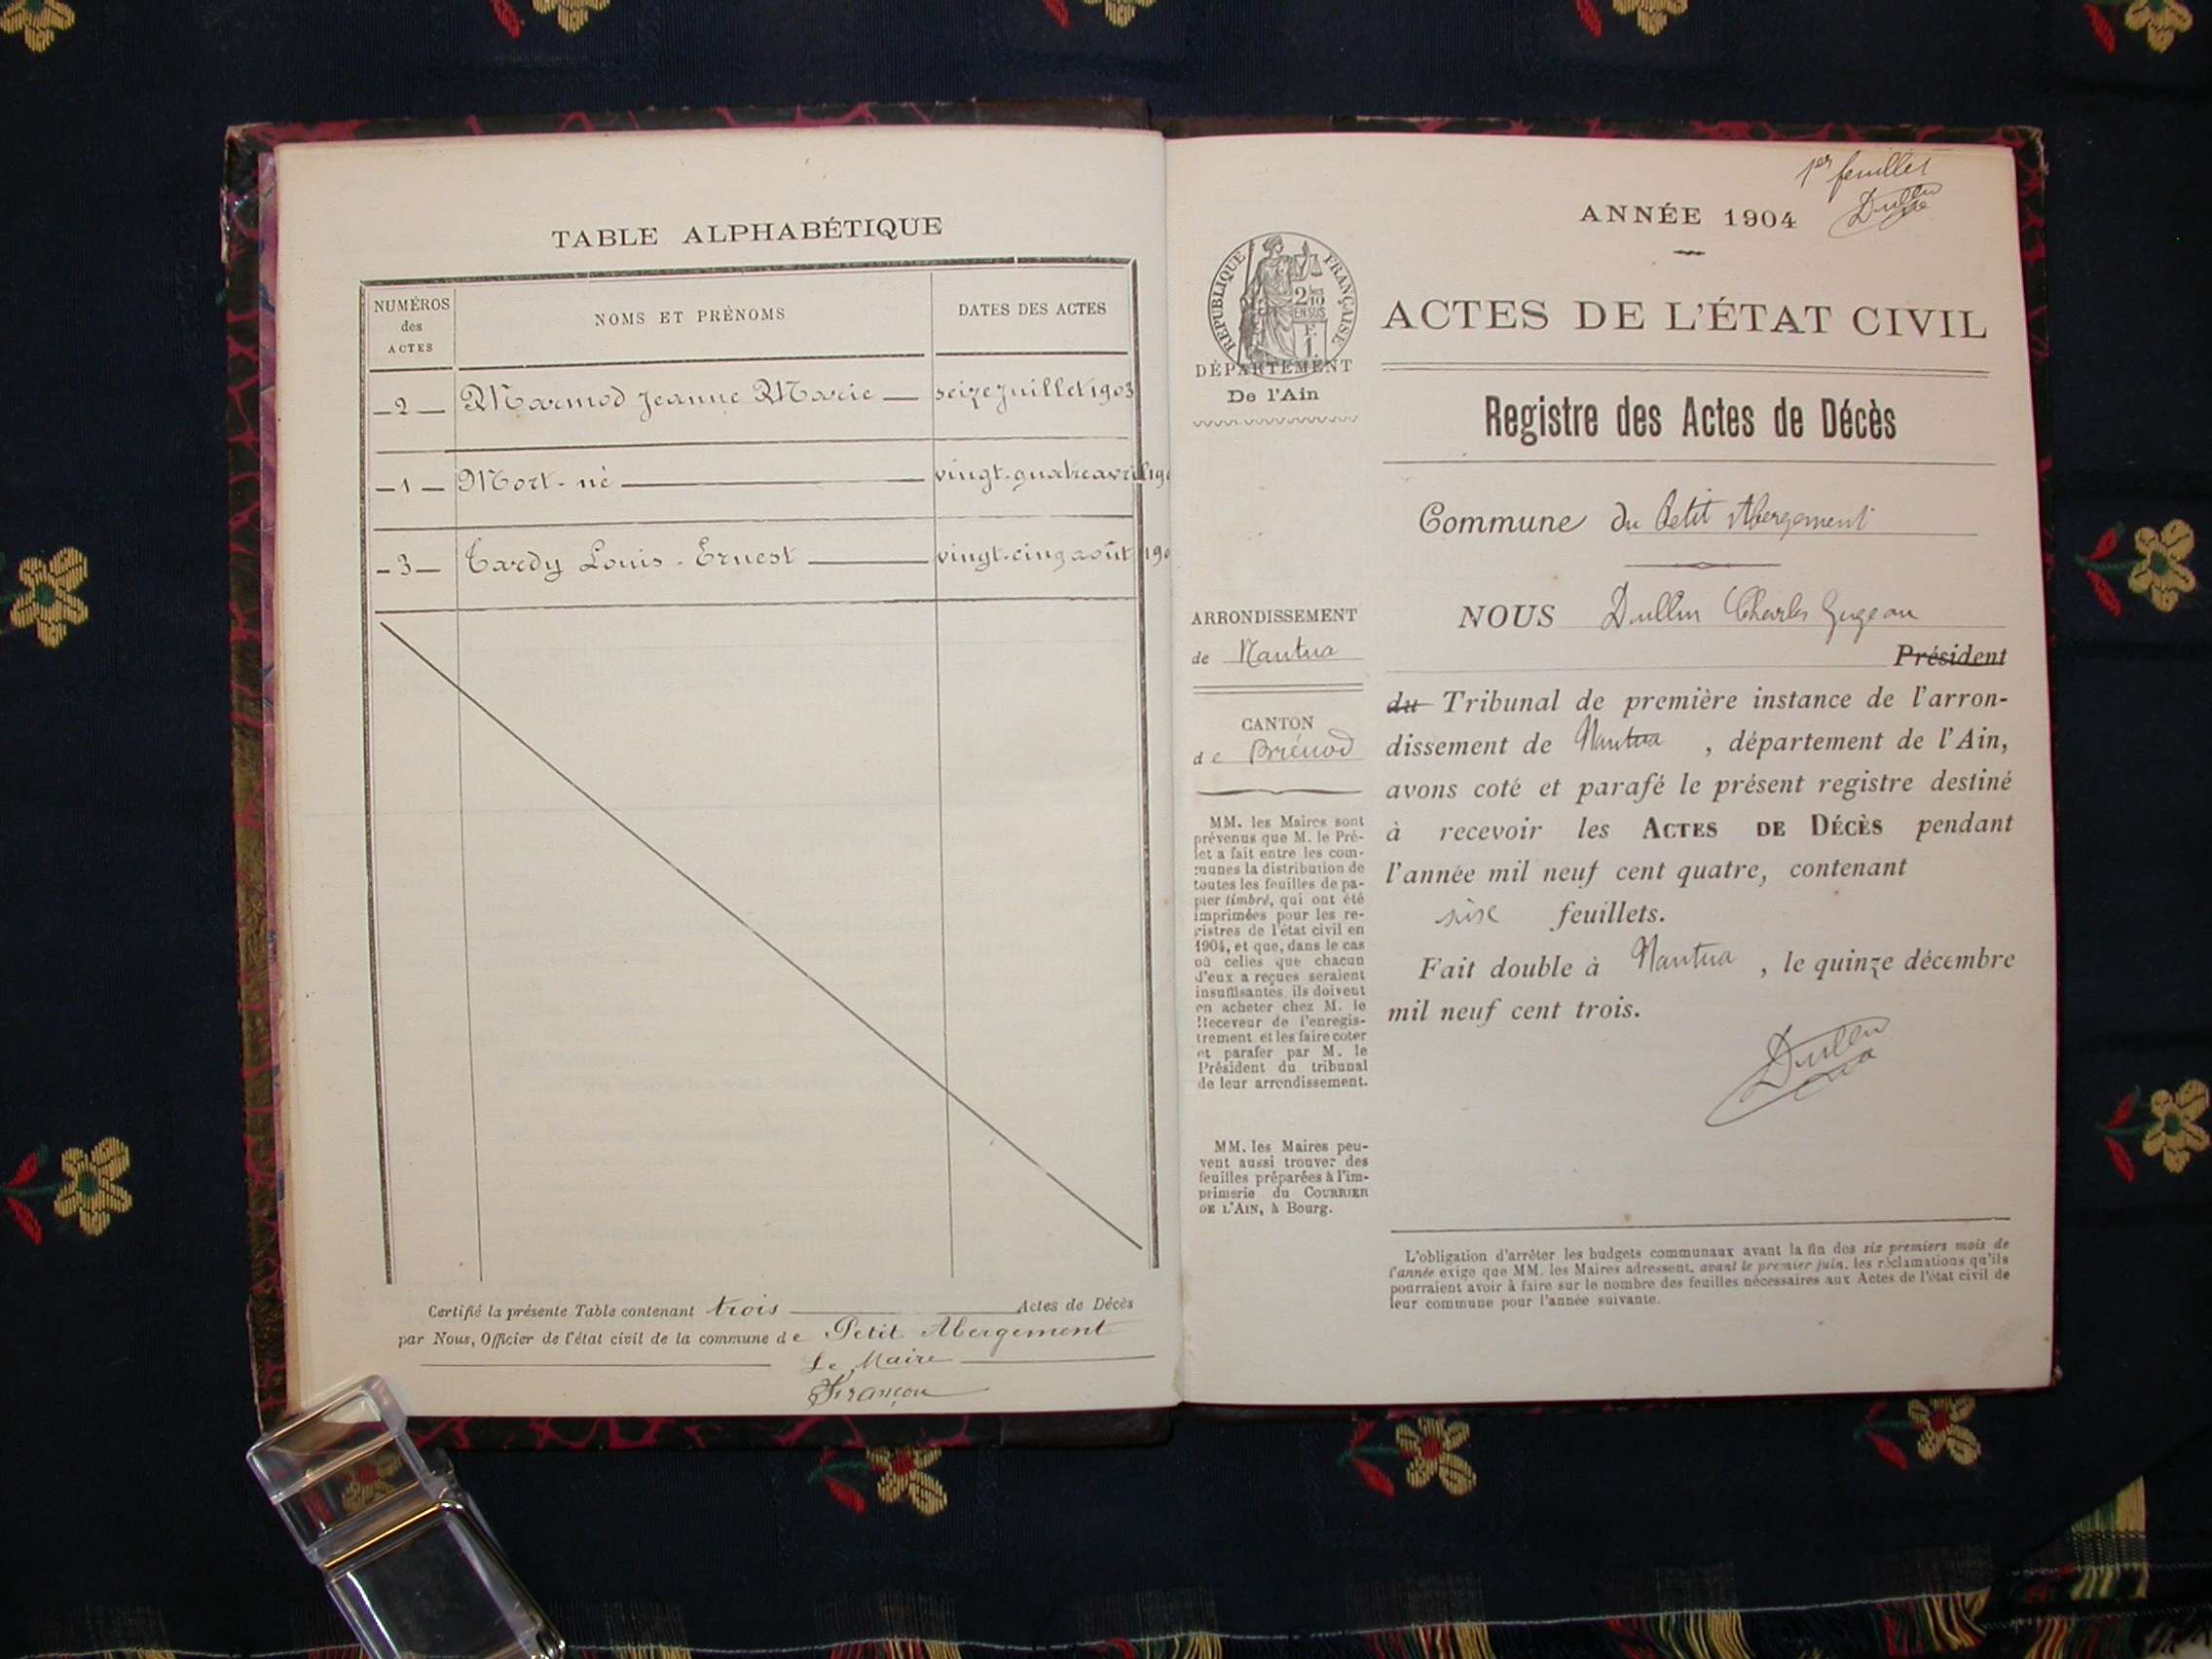 TABLE ALPHABÉTIQUE
NUMÉROS
des
ACTES
NOMS ET PRÉNOMS
DATES DES ACTES
2 Marmod Jeanne Marie seize Juillet 1903
1 Mort-né vingt-quatre avril 190
3 Tardy Louis-Ernest vingt-cinq août 190
Certifié la présente Table contenant trois Actes de Décès
par Nous, Officier de l'état civil de la commune de Petit Abergement
Le Maire
Françon
1er feuillet
Dullin
ANNÉE 1904
RÉPUBLIQUE FRANÇAISE
2
10
EN SUS
F.
1.
DÉPARTEMENT
De l'Ain
ACTES DE L'ÉTAT CIVIL
Registre des Actes de Décès
Commune du Petit Abergement
ARRONDISSEMENT
de Nantua
CANTON
de Brénod
MM. les Maires sont
prévenus que M. le Pré-
fet a fait entre les com-
munes la distribution de
toutes les feuilles de pa-
pier timbré, qui ont été
imprimées pour les re-
gistres de l'état civil en
1904, et que, dans le cas
où celles que chacun
d'eux a reçues seraient
insuffisantes, ils doivent
en acheter chez M. le
Receveur de l'enregis-
trement, et les faire coter
et parafer par M. le
Président du tribunal
de leur arrondissement.
MM. les Maires peu-
vent aussi trouver des
feuilles préparées à l'im-
primerie du COURRIER
DE L'AIN, à Bourg.
NOUS Dullin Charles
Président
du Tribunal de première instance de l'arron-
dissement de Nantua , département de l'Ain,
avons coté et parafé le présent registre destiné
à recevoir les ACTES DE DÉCÈS pendant
l'année mil neuf cent quatre, contenant
six feuillets.
Fait double à Nantua , le quinze décembre
mil neuf cent trois.
Dullin
L'obligation d'arrêter les budgets communaux avant la fin des six premiers mois de
l'année exige que MM. les Maires adressent, avant le premier juin, les réclamations qu'ils
pourraient avoir à faire sur le nombre des feuilles nécessaires aux Actes de l'état civil de
leur commune pour l'année suivante.